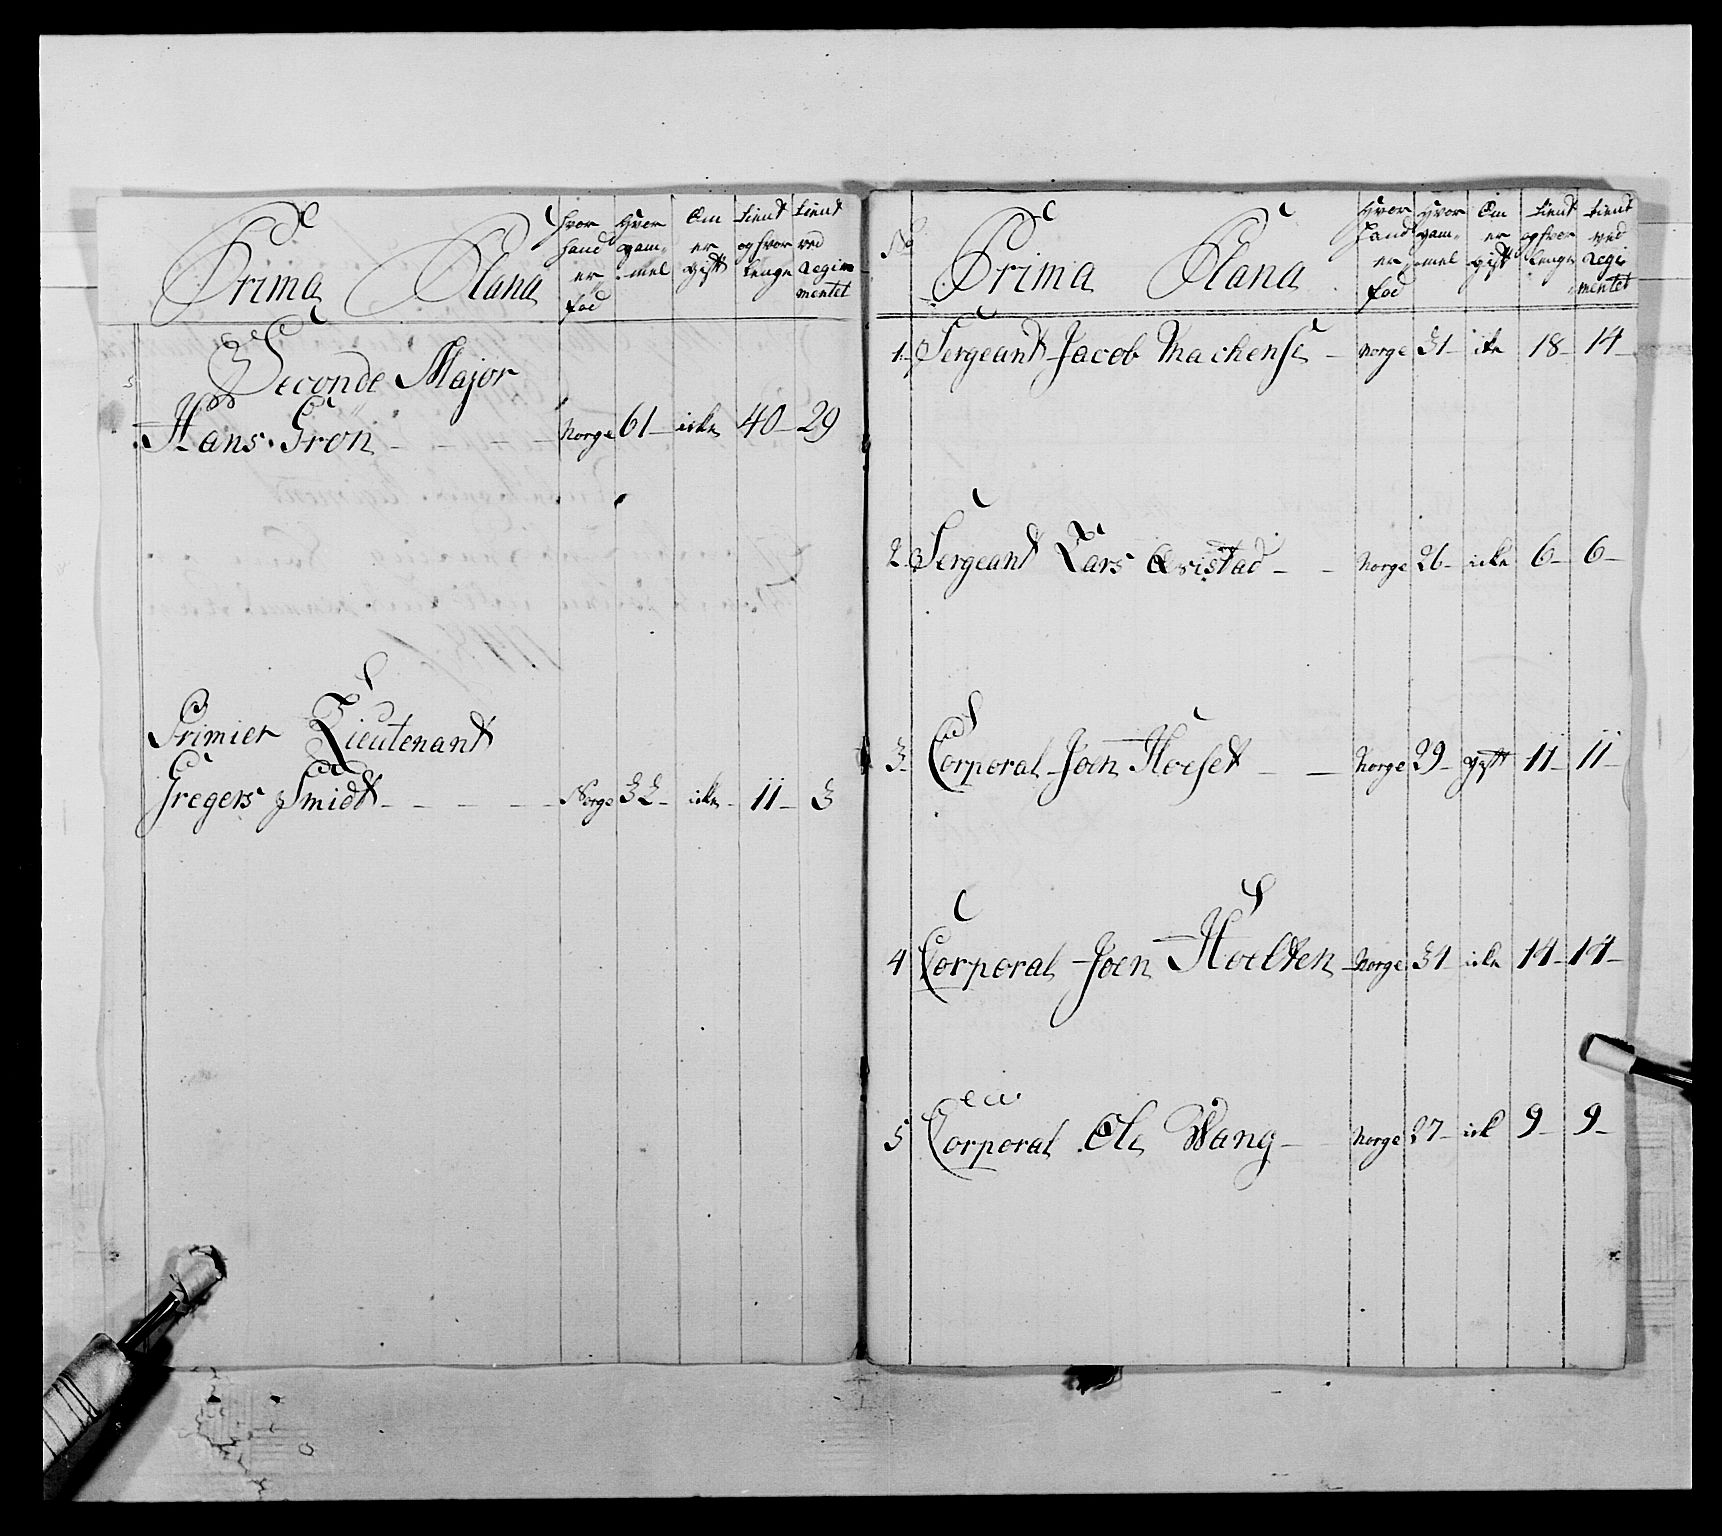 Prima Plana
Hvor hand er föd
Hvor gam- mel
Om er gift
tient og hvor lenge
tient ved Regi- mentet
Seconde Major
Hans Grøn - - - - Norge 61 - icke 40 - 29
Primier Lieutenant
Gregers Smidt - - - - Norge 32 - icke - 11 - 3
No
Prima Plana
Hvor hand er föd
Hvor gam- mel
Om er gift
tient og hvor lenge
tient ved Regi- mentet
1. Sergeant Jacob - Norge 31 - ike 18 - 14 -
2. Sergeant Lars - - Norge 26 - icke 6 - 6 -
3. Corporal Joen Hoeset - - Norge 29 - gift 11 - 11 -
4 Corporal Joen - Norge 31 - icke 14 - 14 -
5 Corporal Ole Wang - Norge 27 - ick 9 - 9 -